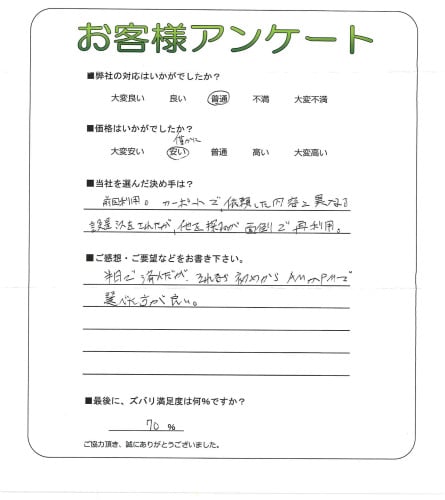 お客様アンケート
■弊社の対応はいかがでしたか?
大変良い 良い 普通 不満 大変不満
■価格はいかがでしたか?
僅かに
大変安い 安い 普通 高い 大変高い
■当社を選んだ決め手は?
前回利用。カーポートで、依頼した内容と異なる
設置をされたが、他を探すのが面倒で再利用。
■ご感想・ご要望などをお書き下さい。
半日で済んだが、それなら初めからAMかPMで
選べた方が良い。
■最後に、ズバリ満足度は何%ですか?
70 %
ご協力頂き、誠にありがとうございました。